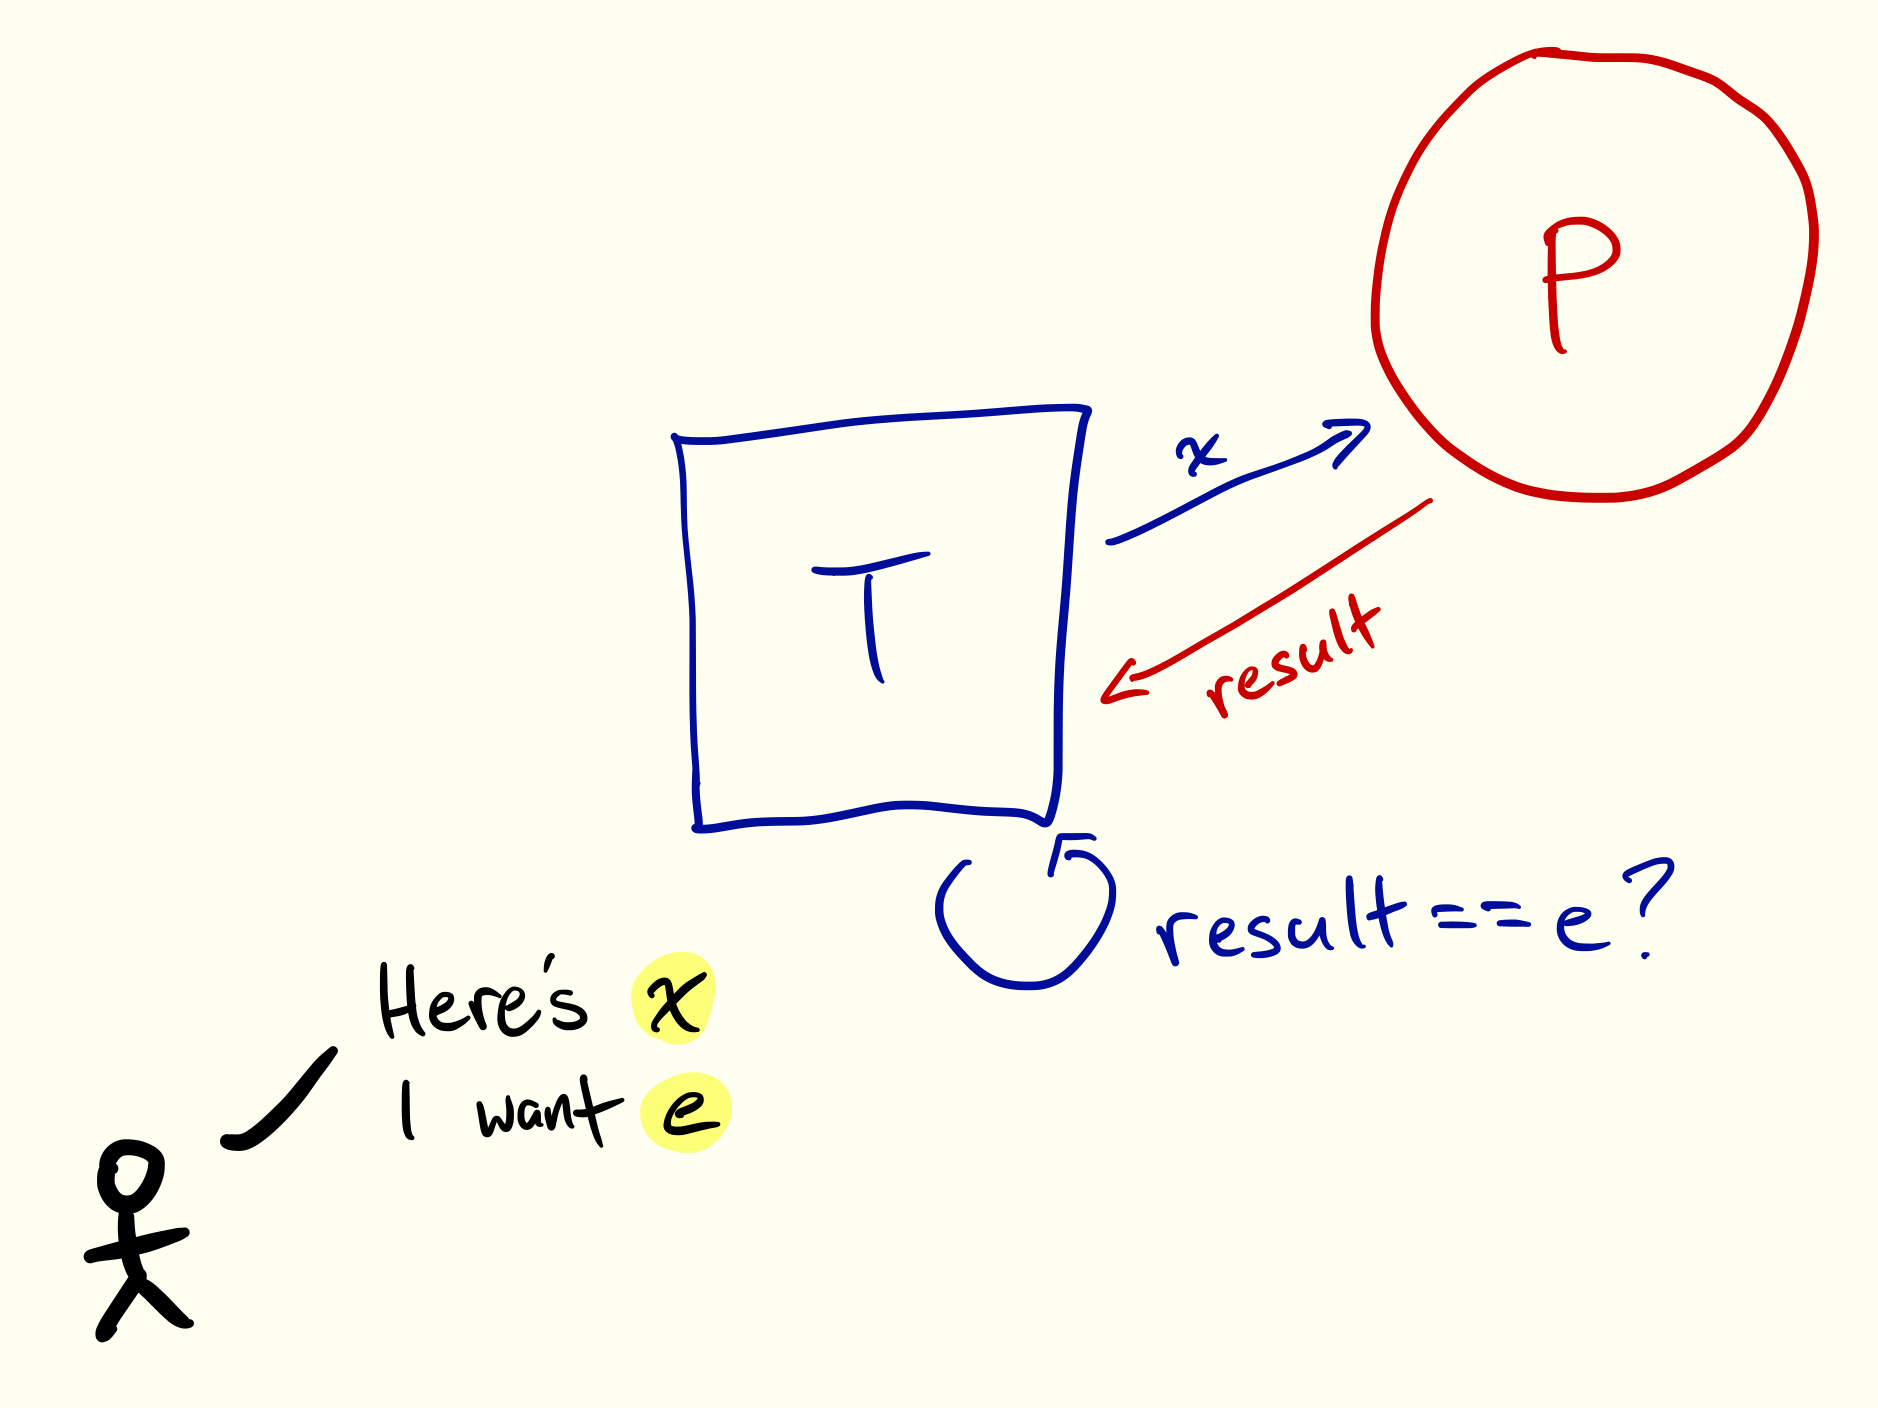 P
x
T
result
result == e?
Here's x
I want e